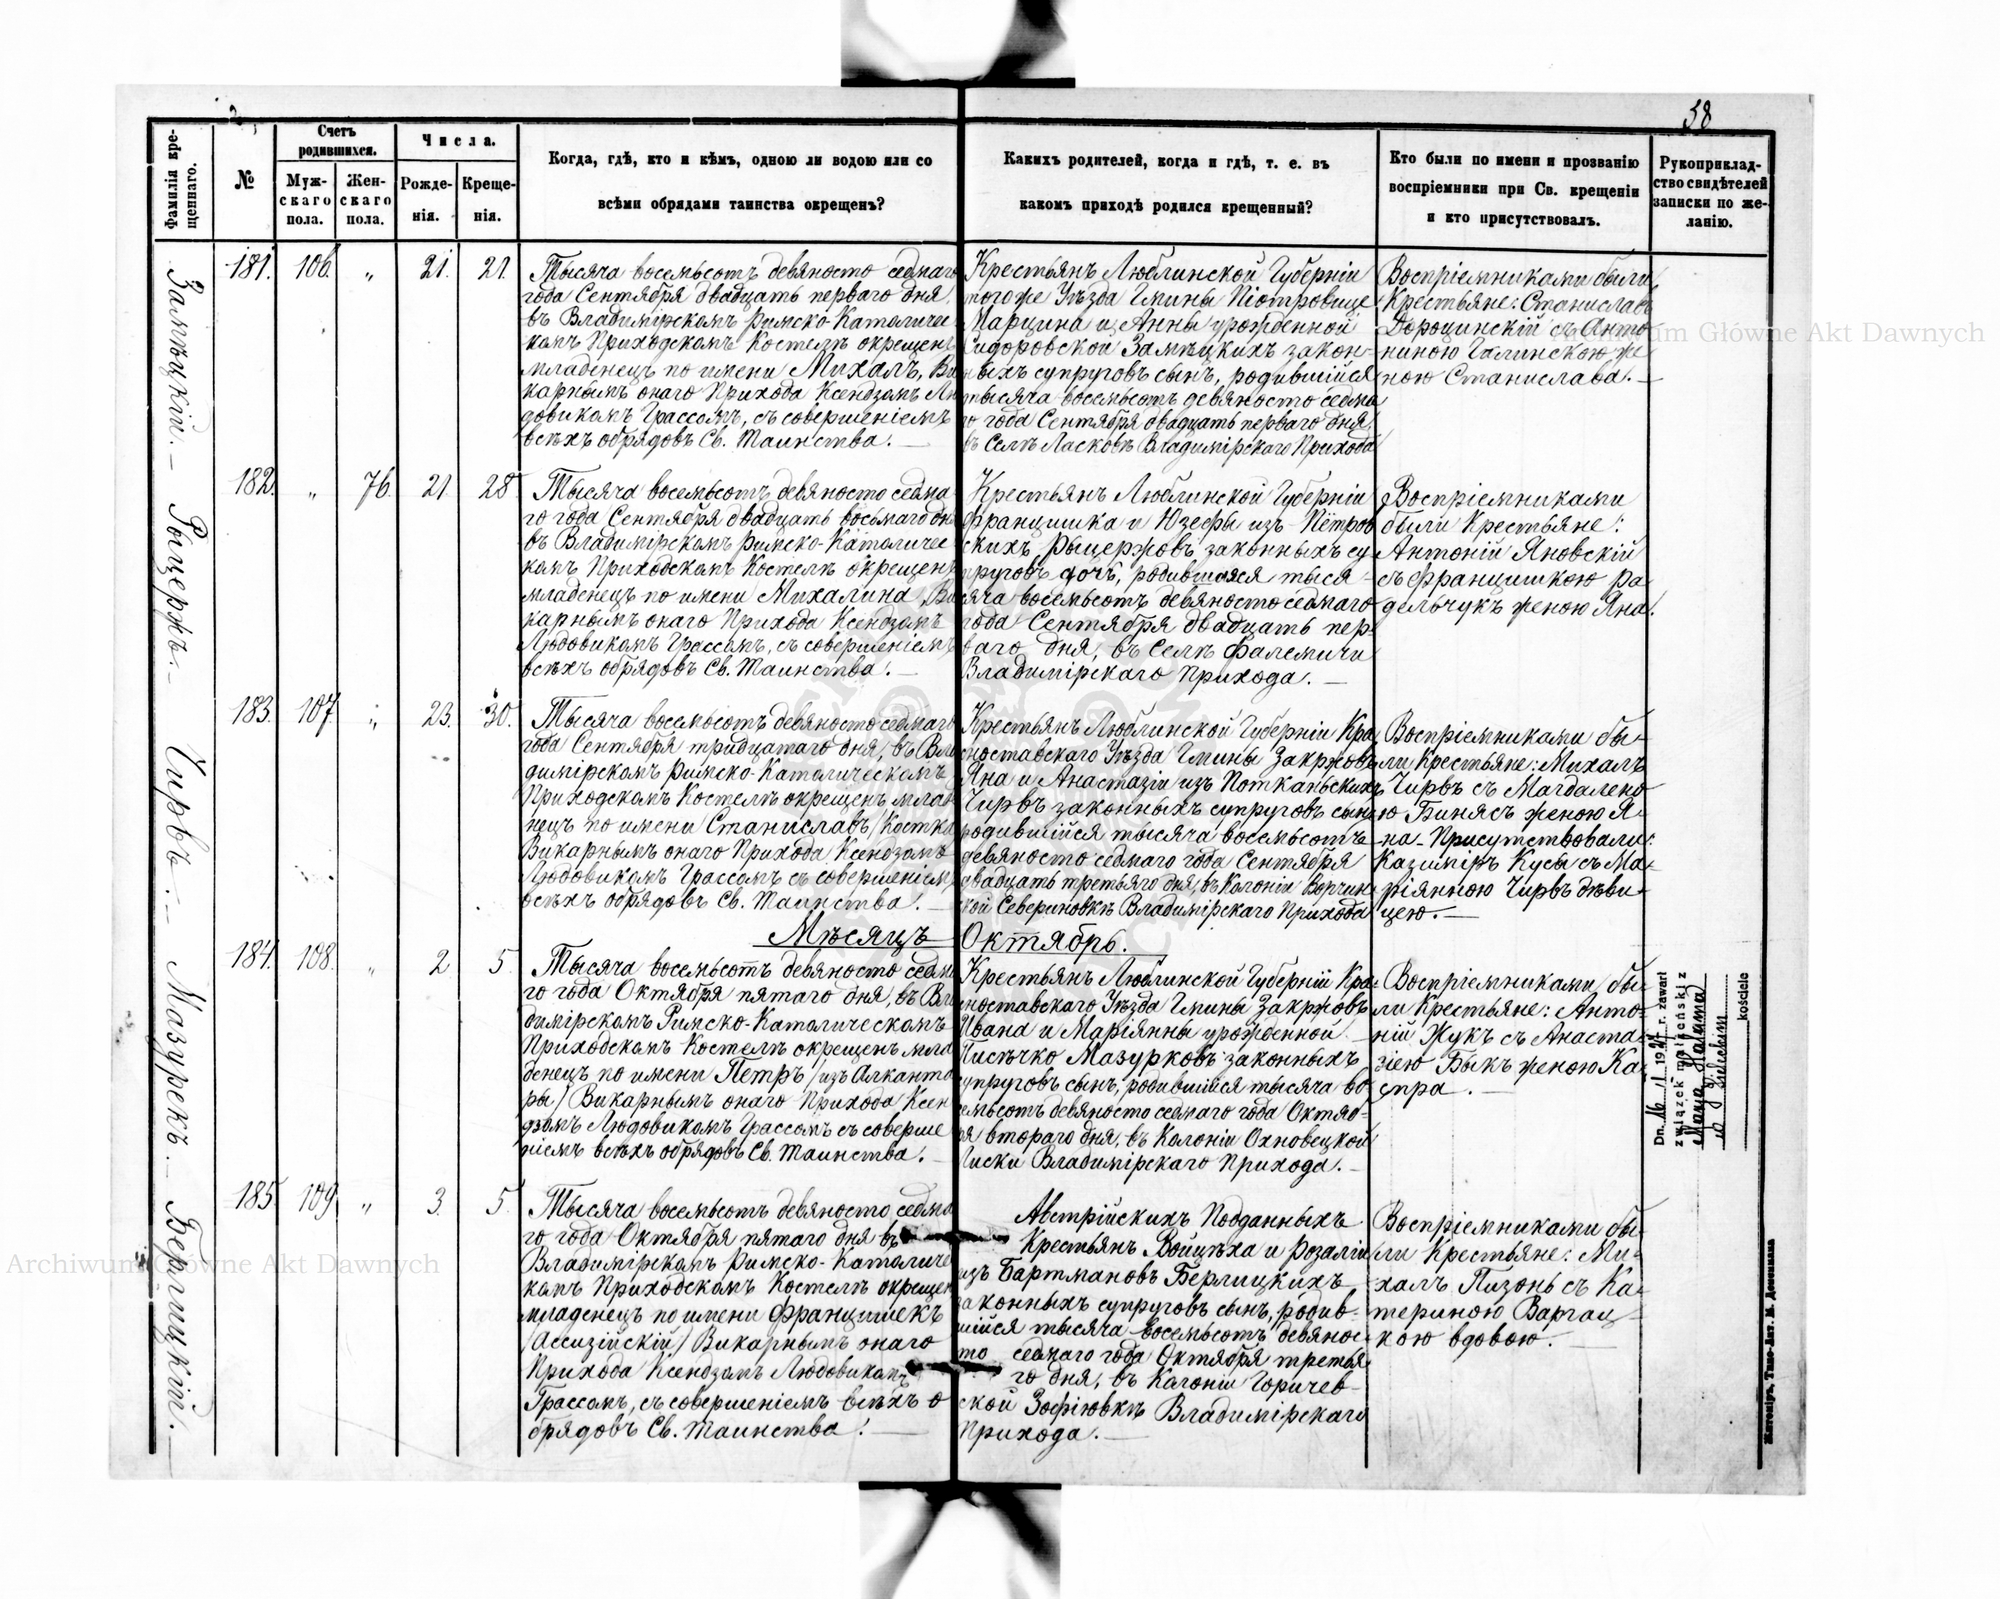 58
Фамилія кре-
щеннаго.
№
Счетъ
родившихся.
Муж-
скаго
пола.
Жен-
скаго
пола.
Числа.
Рожде-
нія.
Креще-
нія.
Когда, гдѣ, кто и кѣмъ, одною ли водою или со
всѣми обрядами таинства окрещенъ?
Какихъ родителей, когда и гдѣ, т. е. въ
какомъ приходѣ родился крещенный?
Кто были по имени и прозванію
воспріемники при Св. крещеніи
и кто присутствовалъ.
Рукоприклад-
ство свидѣтелей
записки по же-
ланію.
Замѣцкій.
181. 106. „ 21. 21.
Тысяча восемьсотъ девяносто седмаго
года Сентября двадцать перваго дня,
въ Владимірскомъ Римско-Католичес-
комъ Приходскомъ Костелѣ окрещенъ
младенецъ по имени Михалъ, Ви
карнымъ онаго Прихода Ксендзомъ Лю
довикомъ Грассомъ, съ совершеніемъ
всѣхъ обрядовъ Св. Таинства. —
Крестьянъ Люблинской Губерніи
тогоже Уѣзда Гмины Піотровице
Марцина и Анны урожденной
Сидоровской Замѣцкихъ закон-
ныхъ супруговъ сынъ, родившійся
тысяча восемьсотъ девяносто седма
го года Сентября двадцать перваго дня,
въ Селѣ Ласковѣ Владимірскаго Прихода
Воспріемниками были
Крестьяне: Станиславъ
Дороцинскій съ Анто
ниною Галинскою же
ною Станислава. —
Рыцержъ.
182. „ 76. 21 28
Тысяча восемьсотъ девяносто седма
го года Сентября двадцать восьмаго дня
въ Владимірскомъ Римско-Католичес-
комъ Приходскомъ Костелѣ окрещенъ
младенецъ по имени Михалина, Ви
карнымъ онаго Прихода Ксендзомъ
Людовикомъ Грассомъ, съ совершеніемъ
всѣхъ обрядовъ Св. Таинства. —
Крестьянъ Люблинской Губерніи
Францишка и Юзефы изъ Пётров
скихъ Рыцержовъ законныхъ су
пруговъ дочь, родившаяся тыся-
яча восемьсотъ девяносто седмаго
года Сентября двадцать пер-
ваго дня, въ Селѣ Фалемичи
Владимірскаго Прихода. —
Воспріемниками
были Крестьяне:
Антоній Яновскій
съ Францишкою Ра
дельчукъ женою Яна.
Чирвъ.
183. 107 „ 23. 30.
Тысяча восемьсотъ девяносто седмаго
года Сентября тридцатаго дня, въ Вла
димірскомъ Римско-Католическомъ
Приходскомъ Костелѣ окрещенъ млад
нецъ по имени Станиславъ /Костка
Викарнымъ онаго Прихода Ксендзомъ
Людовикомъ Грассомъ съ совершеніемъ
всѣхъ обрядовъ Св. Таинства. —
Крестьянъ Люблинской Губерніи Кра
сноставскаго Уѣзда Гмины Закржовъ
Яна и Анастазіи изъ Потканьскихъ
Чирвъ законныхъ супруговъ сынъ
родившійся тысяча восемьсотъ
девяносто седмаго года Сентября
двадцать третьяго дня, въ Колоніи Ворчин
ской Севериновкѣ Владимірскаго Прихода
Воспріемниками бы-
ли Крестьяне: Михалъ
Чирвъ съ Магдалено
ю Бинясъ женою Я-
на. Присутствовали:
Казиміръ Кусы съ Ма-
ріянною Чирвъ дѣви-
цею. —
Мѣсяцъ Октябрь.
Мазурекъ.
184. 108. „ 2 5
Тысяча восемьсотъ девяносто седма
го года Октября пятаго дня, въ Вла
димірскомъ Римско-Католическомъ
Приходскомъ Костелѣ окрещенъ мла
денецъ по имени Петръ /изъ Алканта
ры/ Викарнымъ онаго Прихода Ксен
дзомъ Людовикомъ Грассомъ съ соверше
ніемъ всѣхъ обрядовъ Св. Таинства. —
Крестьянъ Люблинской Губерніи Кра-
сноставскаго Уѣзда Гмины Закржовъ
Ивана и Маріянны урожденной
Писѣчко Мазурковъ законныхъ
супруговъ сынъ, родившійся тысяча во
семьсотъ девяносто седмаго года Октяб-
ря втораго дня, въ Колоніи Охновецкой
Лиски Владимірскаго Прихода. —
Воспріемниками бы-
ли Крестьяне: Анто-
ній Жукъ съ Анаста-
зіею Быкъ женою Ка-
спра. —
Dn. 16/I 1921 r. zawarł
związek małżeński z
kościele
Берлицкій.
185. 109 „ 3. 5.
Тысяча восемьсотъ девяносто седма
го года Октября пятаго дня въ
Владимірскомъ Римско-Католичес
комъ Приходскомъ Костелѣ окрещен
младенецъ по имени Францишекъ
/Ассизійскій/ Викарнымъ онаго
Прихода Ксендзомъ Людовикомъ
Грассомъ, съ совершеніемъ всѣхъ о-
брядовъ Св. Таинства. —
Австрійскихъ Подданныхъ
Крестьянъ Войцѣха и Розаліи
изъ Бартмановъ Берлицкихъ
законныхъ супруговъ сынъ, родив-
шійся тысяча восемьсотъ девянос-
то седмаго года Октября третья
го дня, въ Колоніи Горичев-
ской Зофіювкѣ Владимірскаго
Прихода. —
Воспріемниками бы-
ли Крестьяне: Ми-
халъ Пизонь съ Ка-
териною Варгац-
кою вдовою. —
Archiwum Główne Akt Dawnych
Archiwum Główne Akt Dawnych